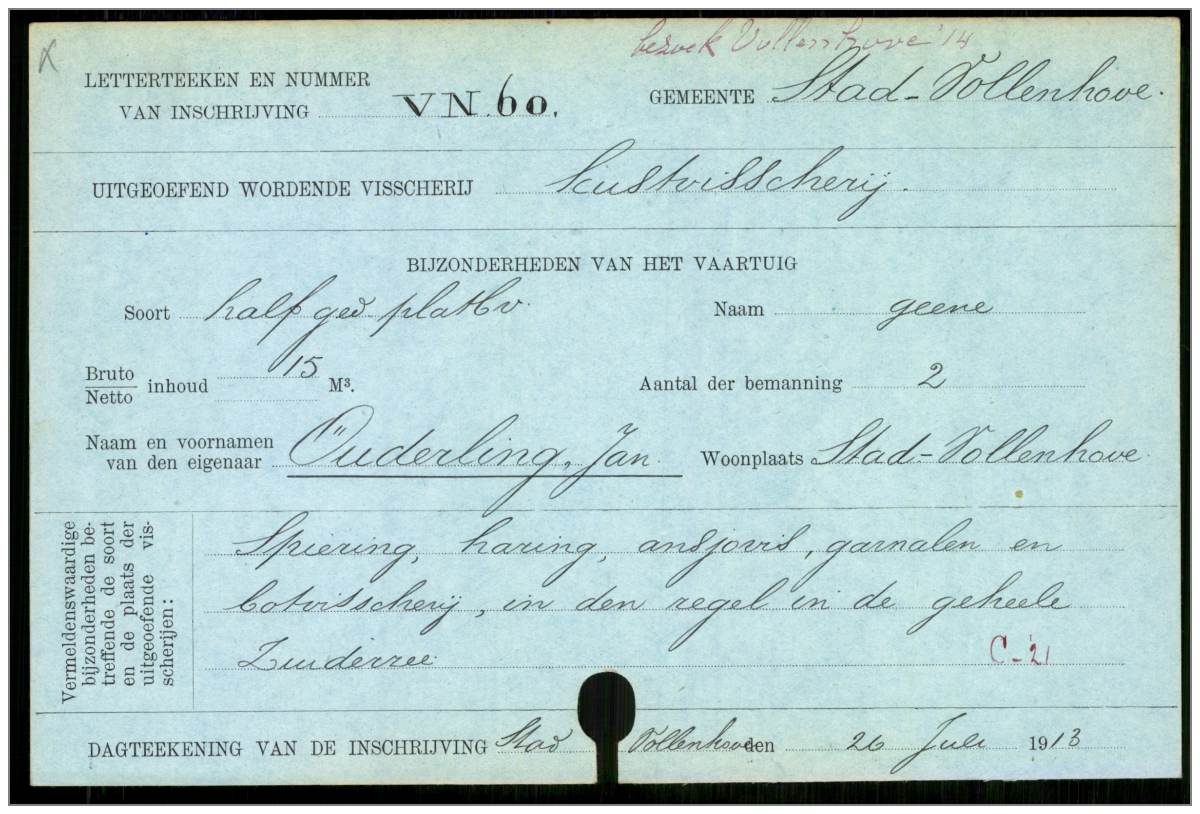 bezoek Vollenhove '14
LETTERTEEKEN EN NUMMER
VAN INSCHRIJVING VN. 60.
GEMEENTE Stad-Vollenhove.
UITGEOEFEND WORDENDE VISSCHERIJ Kustvisscherij.
BIJZONDERHEDEN VAN HET VAARTUIG
Soort half ged platbv. Naam geene
Bruto
Netto inhoud 15 M³. Aantal der bemanning 2
Naam en voornamen
van den eigenaar Ouderling, Jan. Woonplaats Stad-Vollenhove
Vermeldenswaardige
bijzonderheden be-
treffende de soort
en de plaats der
uitgeoefende vis-
scherijen:
Spiering, haring, ansjovis, garnalen en
botvisscherij, in den regel in de geheele
Zuiderzee
C-21
DAGTEEKENING VAN DE INSCHRIJVING Stad Vollenhove den 26 Juli 1913